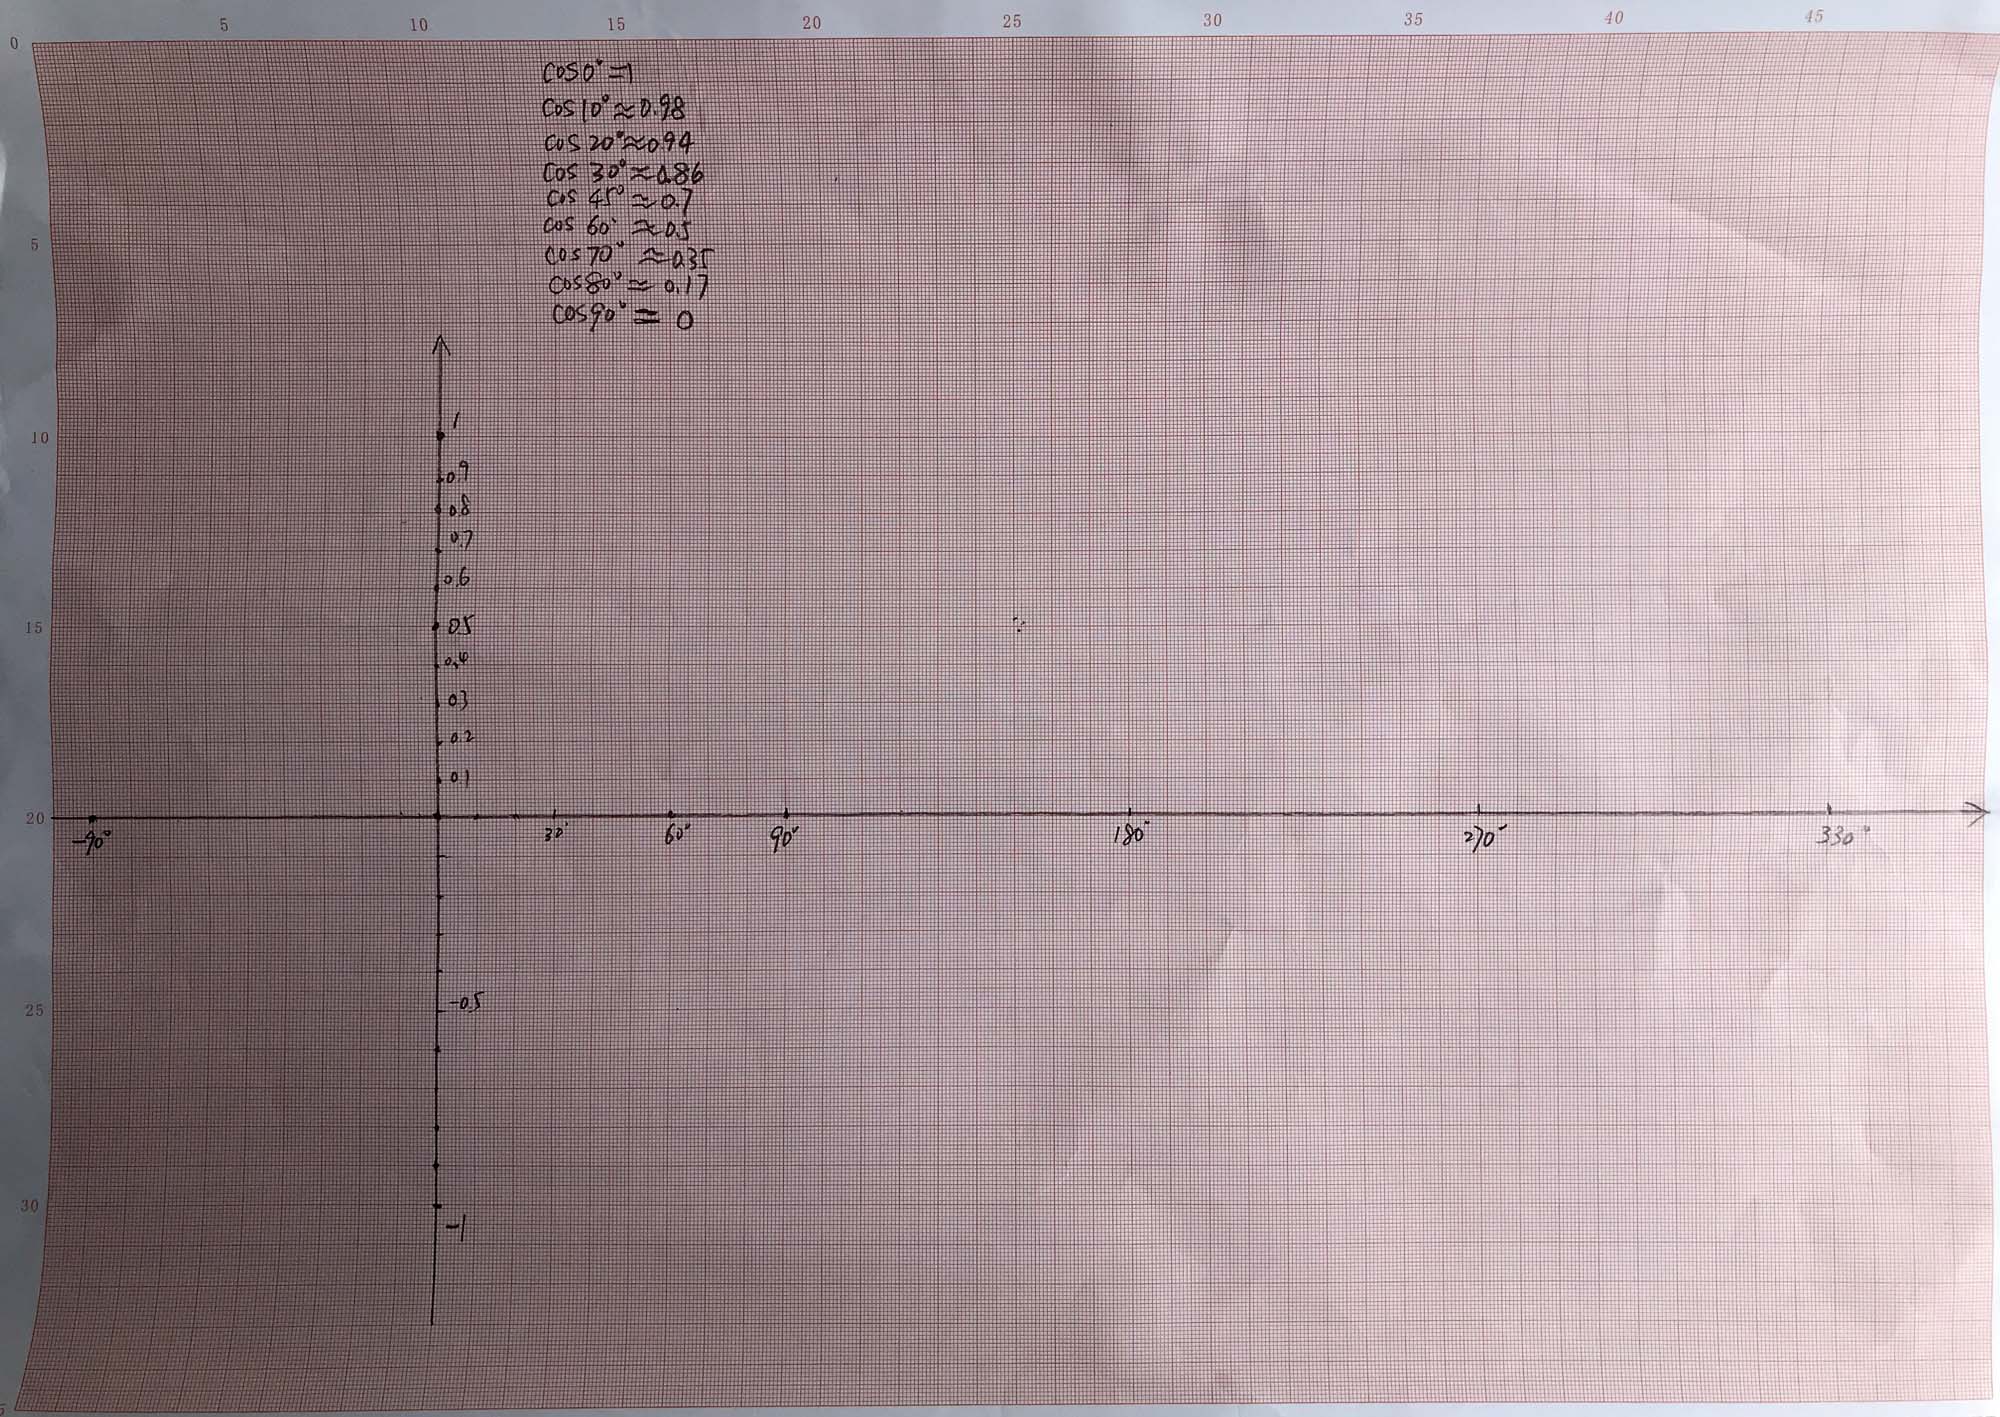 5 10 15 20 25 30 35 40 45
0
cos0°=1
cos10°≈0.98
cos20°≈0.94
cos30°≈0.86
cos45°≈0.7
5
cos60°≈0.5
cos70°≈0.35
cos80°≈0.17
cos90°=0
1
10
0.9
0.8
0.7
0.6
15
0.5
0.4
0.3
0.2
0.1
20
-90° 30° 60° 90° 180° 270° 330°
-0.5
25
30
-1